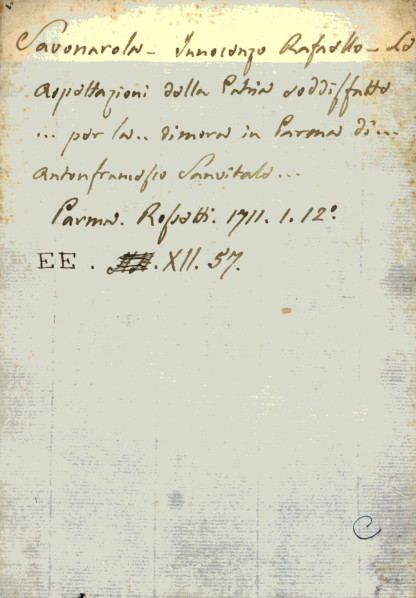 Savonarola - Innocenzo Rafaello - Le
aspettazioni della Patria soddisfatte
... per la.. dimora in Parma di...
Antonfrancesco Sanvitale...
Parma. Rossetti. 1711. 1. 12°.
EE. XII. 57.
C